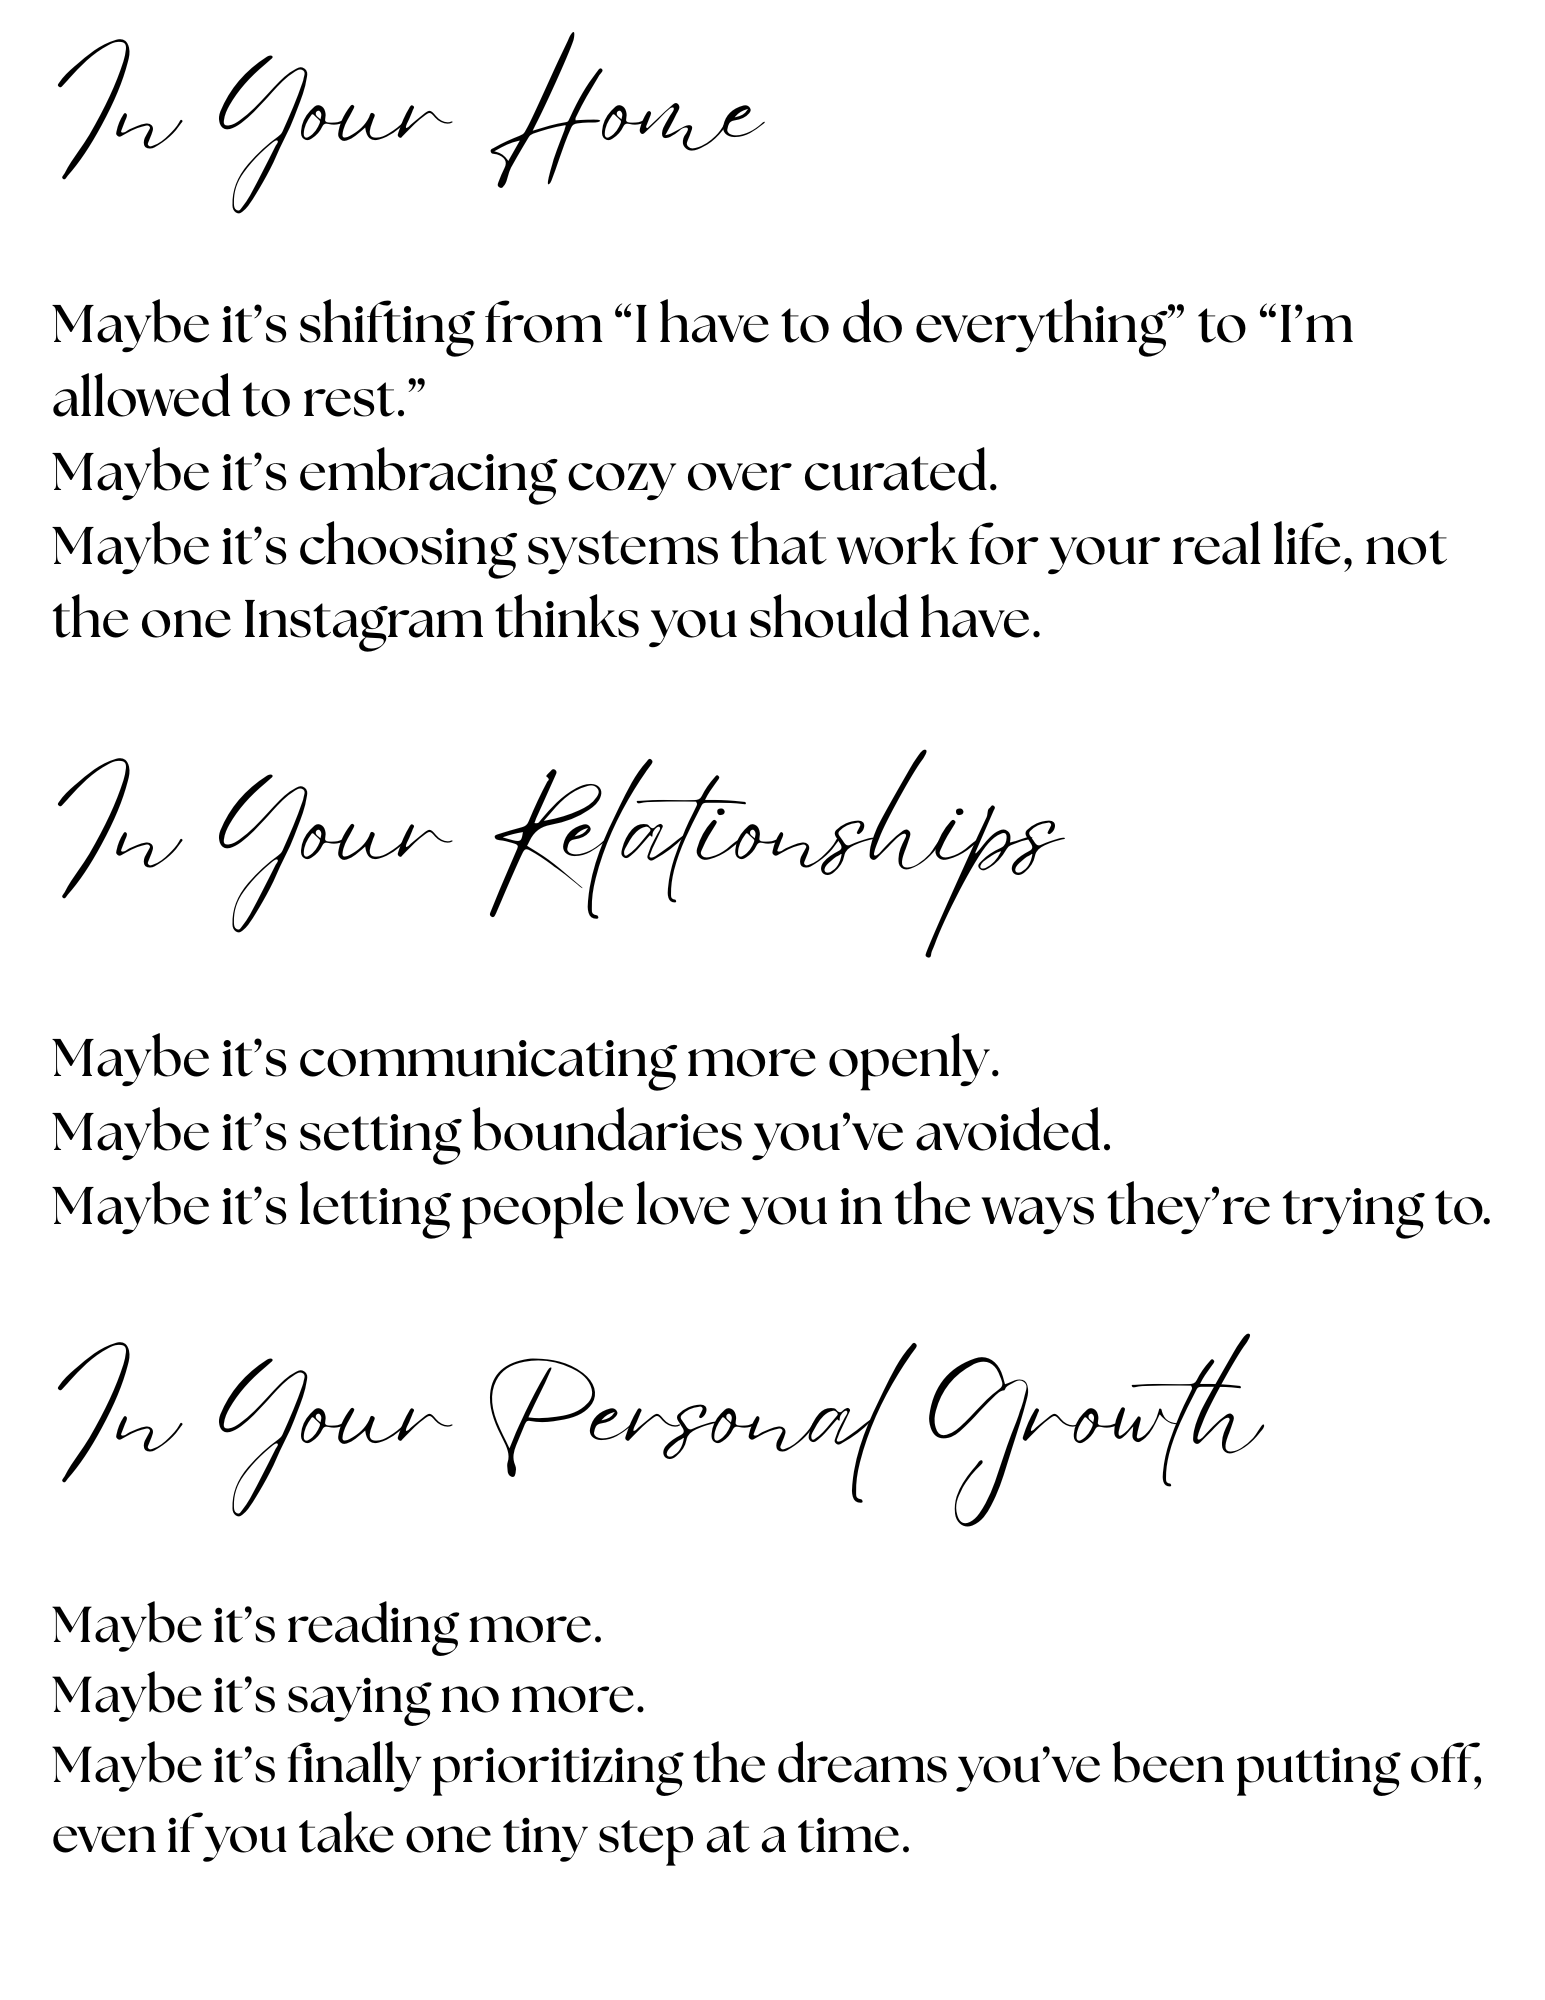 In Your Home
Maybe it’s shifting from “I have to do everything” to “I’m
allowed to rest.”
Maybe it’s embracing cozy over curated.
Maybe it’s choosing systems that work for your real life, not
the one Instagram thinks you should have.
In Your Relationships
Maybe it’s communicating more openly.
Maybe it’s setting boundaries you’ve avoided.
Maybe it’s letting people love you in the ways they’re trying to.
In Your Personal Growth
Maybe it’s reading more.
Maybe it’s saying no more.
Maybe it’s finally prioritizing the dreams you’ve been putting off,
even if you take one tiny step at a time.